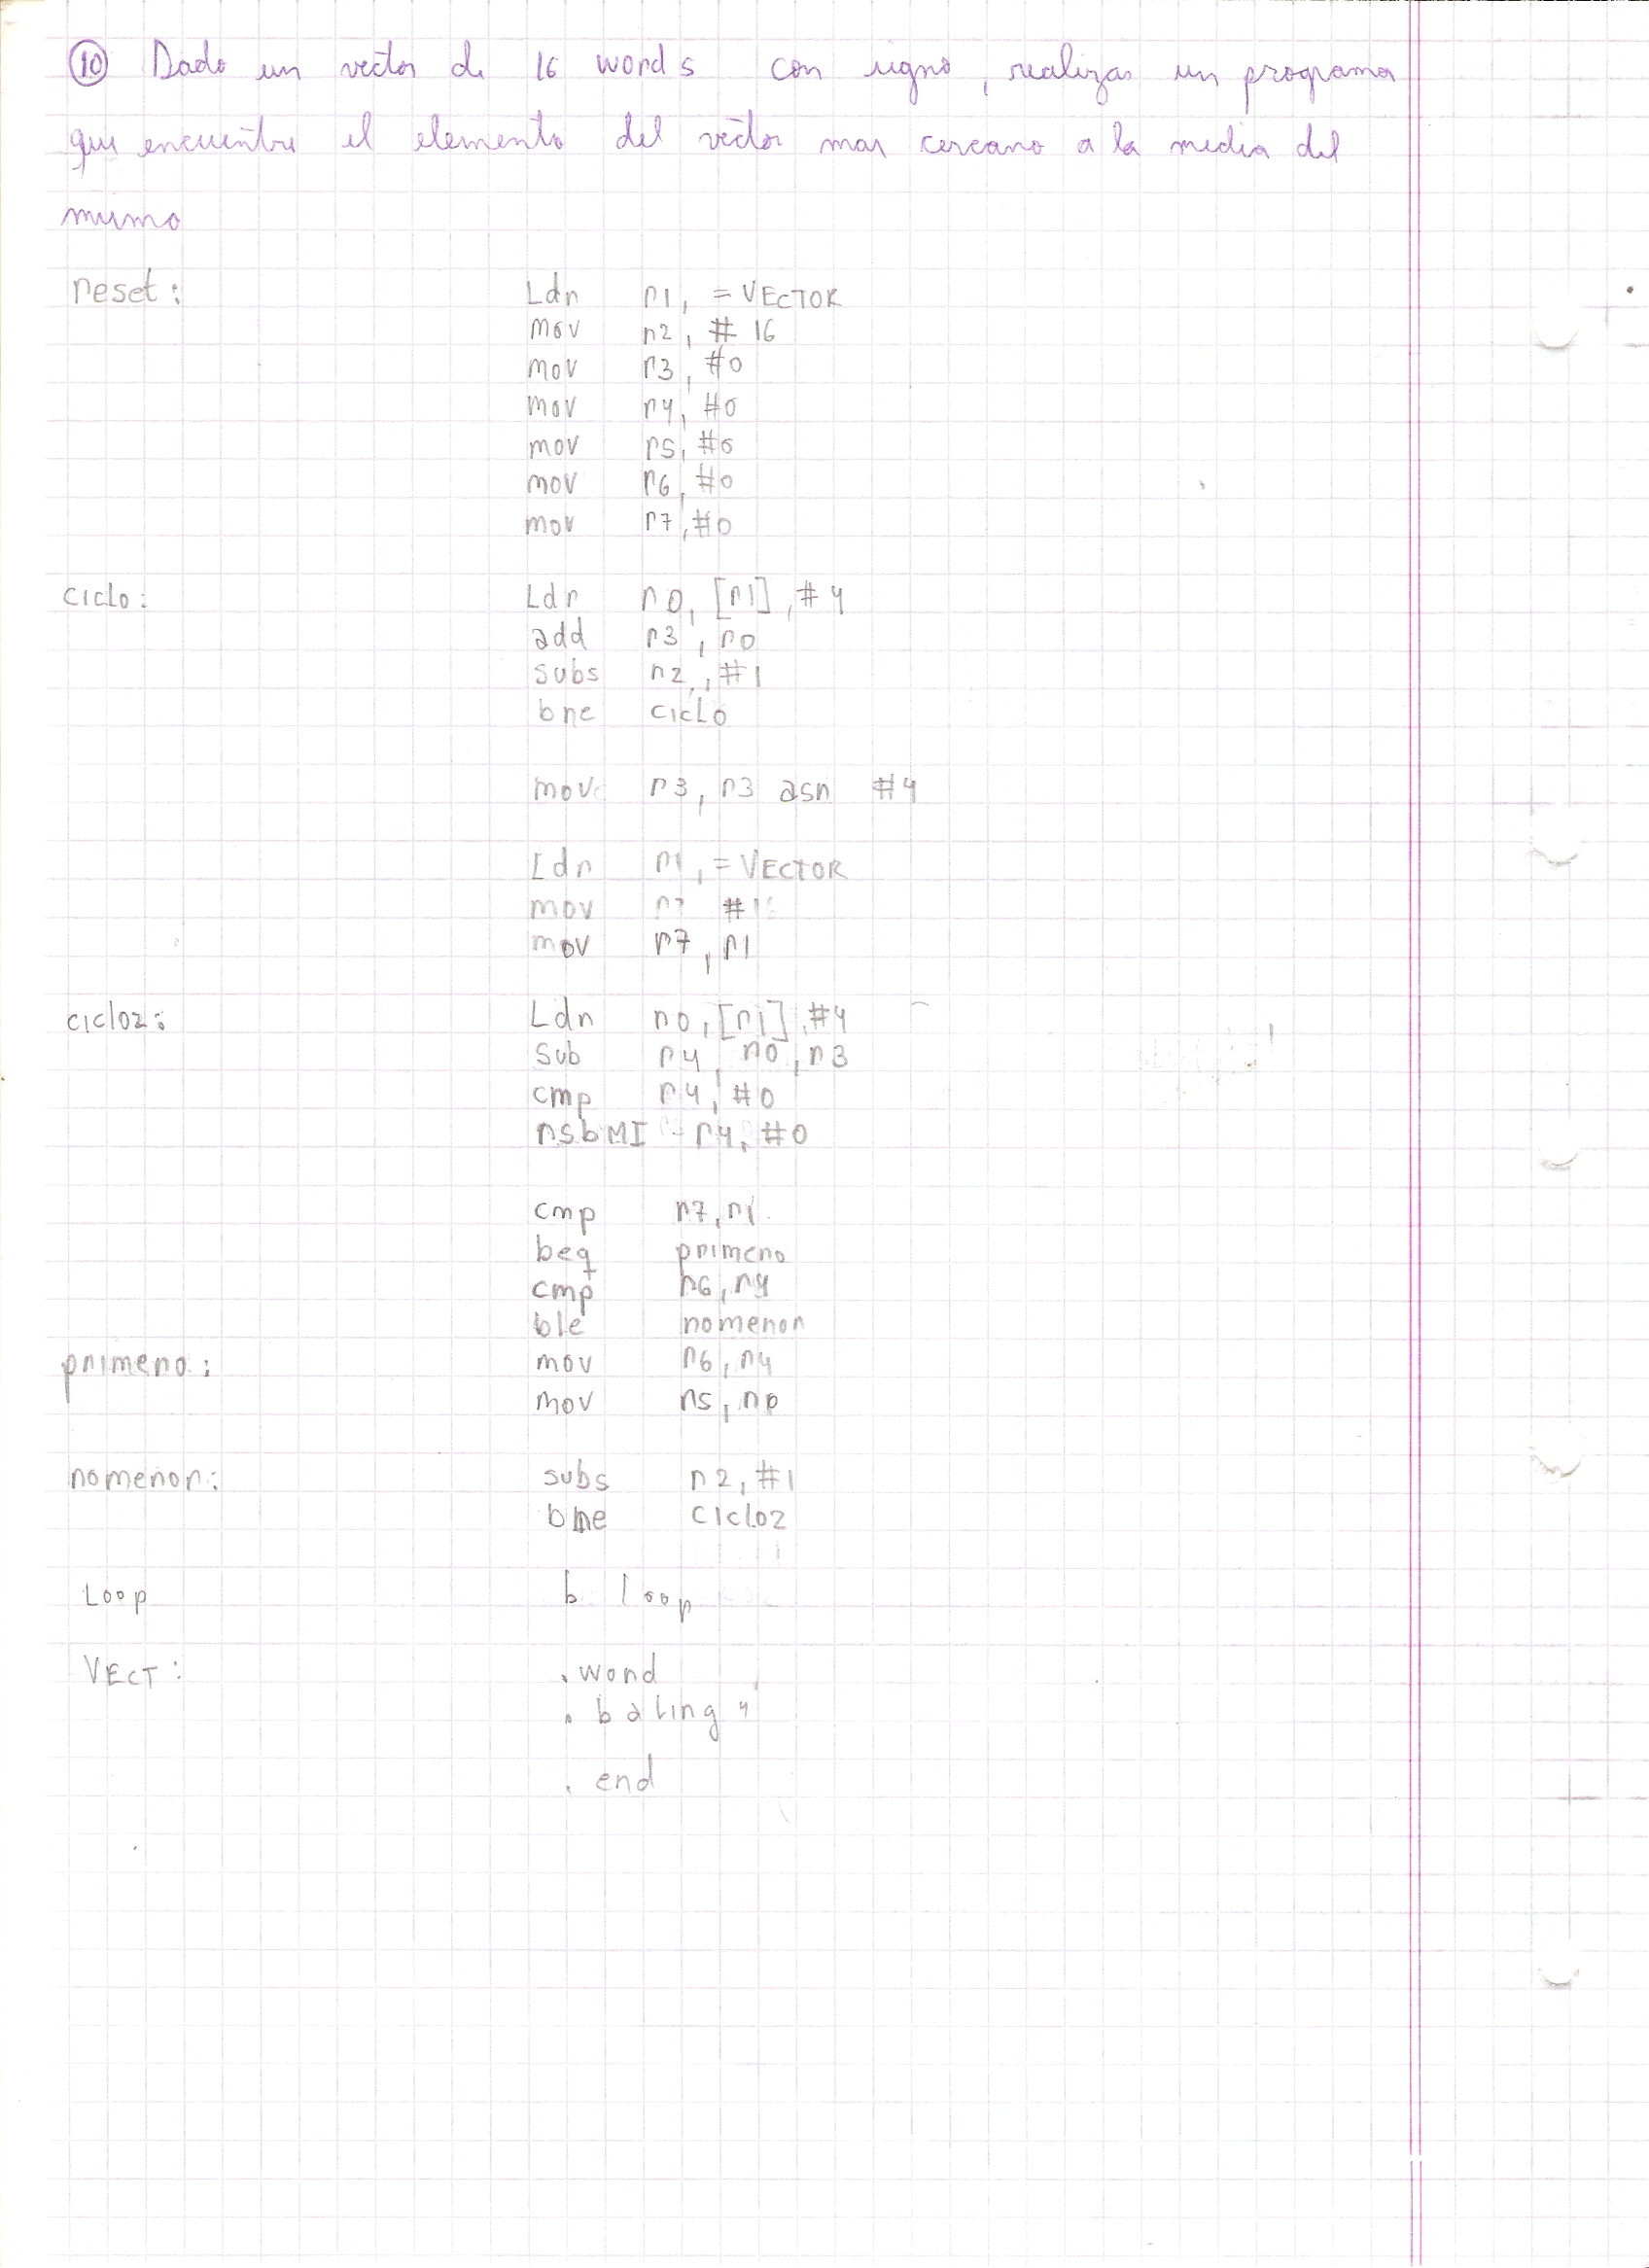 10 Dado un vector de 16 words con signo, realizar un programa
que encuentre el elemento del vector mas cercano a la media del
mismo
reset: Ldr r1, =VECTOR
mov r2, #16
mov r3, #0
mov r4, #0
mov r5, #0
mov r6, #0
mov r7, #0
ciclo: Ldr r0, [r1], #4
add r3, r0
subs r2, #1
bne ciclo
mov r3, r3 asr #4
Ldr r1, =VECTOR
mov r2 #16
mov r7, r1
ciclo2: Ldr r0, [r1], #4
Sub r4, r0, r3
cmp r4, #0
rsbMI r4, #0
cmp r7, r1
beq primero
cmp r6, r4
ble nomenor
primero: mov r6, r4
mov r5, r0
nomenor: subs r2, #1
bne ciclo2
Loop b loop
VECT: .word
.baling 4
.end